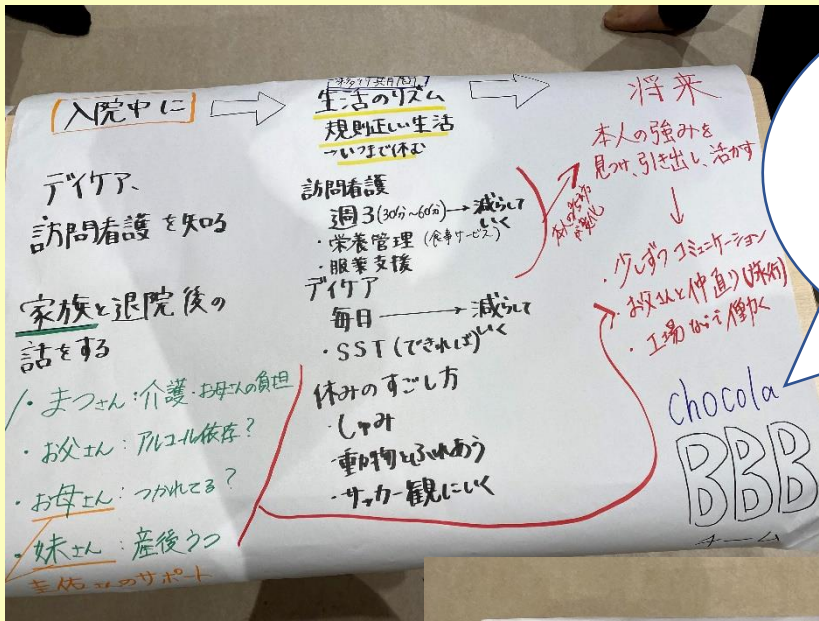 入院中に
デイケア、
訪問看護を知る
家族と退院後の
話をする
・まつさん:介護・お母さんの負担
・お父さん:アルコール依存?
・お母さん:つかれてる?
・妹さん:産後うつ
圭佑さんのサポート
移行期間
生活のリズム
規則正しい生活
→いつまで休む
訪問看護
週3(30分~60分)→減らして
いく
・栄養管理(食事サービス)
・服薬支援
デイケア
毎日→減らして
いく
・SST(できれば)
休みのすごし方
・しゅみ
・動物とふれあう
・サッカー観にいく
将来
本人の強みを
見つけ、引き出し、活かす
↓
・少しずつコミュニケーション
・お父さんと仲直り
・工場などで働く
chocola
BBB
チーム